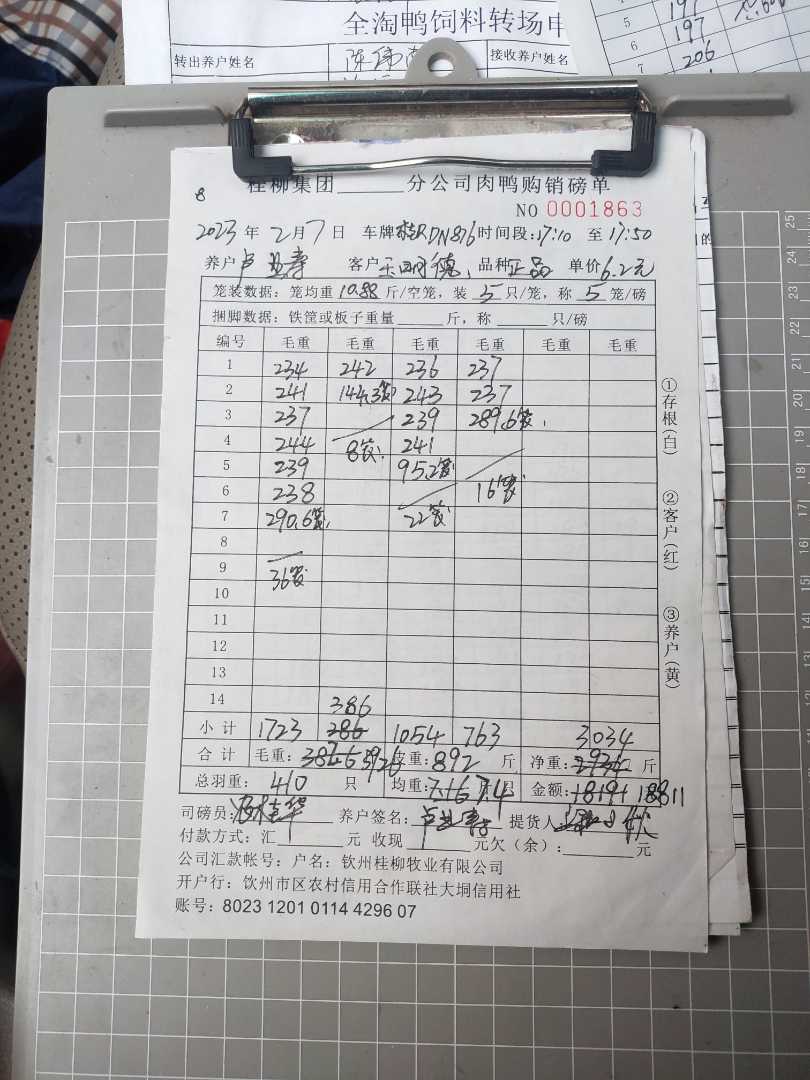 全淘鸭饲料转场申
转出养户姓名 陈伟 接收养户姓名
5 197
6 197
7 206
8
桂柳集团______分公司肉鸭购销磅单
NO 0001863
2023 年 2 月 7 日 车牌 桂RDN876 时间段:17:10 至 17:50
养户 客户 品种 正品 单价 6.2元
笼装数据: 笼均重 10.88 斤/空笼, 装 5 只/笼, 称 5 笼/磅
捆脚数据: 铁筐或板子重量______斤, 称______只/磅
编号 毛重 毛重 毛重 毛重 毛重 毛重
1 234 242 236 237
2 241 144.3笼 243 237
3 237 239 289.6笼
4 244 8笼 241
5 239 95.2笼
6 238 16笼
7 290.6笼 22笼
8
9 36笼
10
11
12
13
14 386
小计 1723 286 1054 763 3034
合计 毛重: 3826 3926 皮重: 892 斤 净重: 2934 斤
总羽重: 410 只 均重: 7.16 7.4 只 金额: 18191 18811
司磅员: 养户签名: 提货人
付款方式: 汇______元 收现______元欠(余):______元
公司汇款帐号: 户名: 钦州桂柳牧业有限公司
开户行: 钦州市区农村信用合作联社大垌信用社
账号: 8023 1201 0114 4296 07
①存根(白) ②客户(红) ③养户(黄)
25
21
20
19
18
17
16
15
14
13
12
11
10